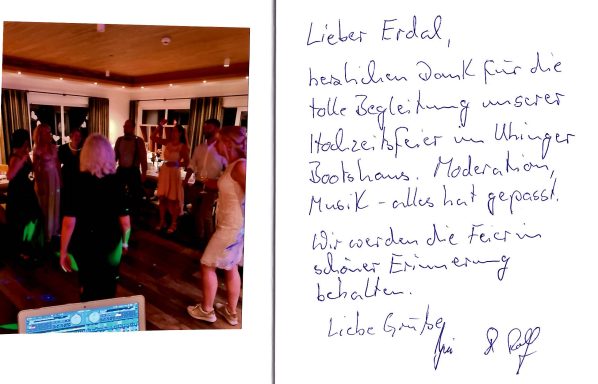 Lieber Erdal,
herzlichen Dank für die
tolle Begleitung unserer
Hochzeitsfeier im Utinger
Bootshaus. Moderation,
Musik - alles hat gepasst.
Wir werden die Feier in
schöner Erinnerung
behalten.
Liebe Grüße
& Ralf